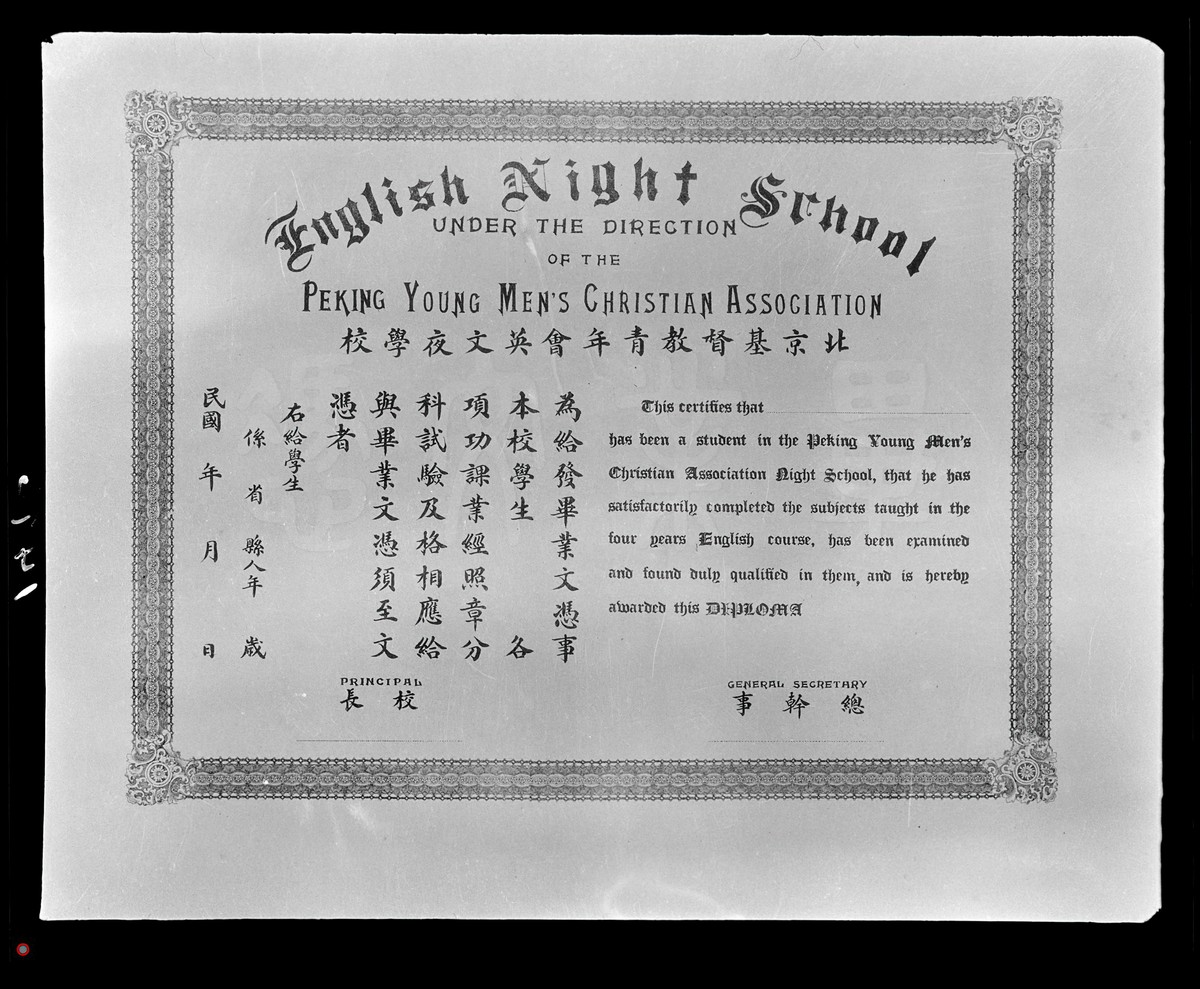 English Night School
UNDER THE DIRECTION
OF THE
PEKING YOUNG MEN'S CHRISTIAN ASSOCIATION
北京基督教青年會英文夜學校
This certifies that
has been a student in the Peking Young Men's
Christian Association Night School, that he has
satisfactorily completed the subjects taught in the
four years English course, has been examined
and found duly qualified in them, and is hereby
awarded this DIPLOMA
為給發畢業文憑事
本校學生 各
項功課業經照章分
科試驗及格相應給
與畢業文憑須至文
憑者
右給學生
係 省 縣人年 歲
民國 年 月 日
GENERAL SECRETARY
總幹事
PRINCIPAL
校長